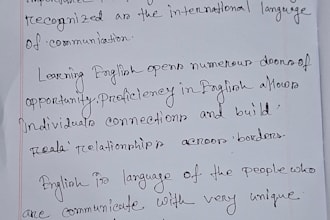 recognized as the international language
of communiation.
Learning English opens numerous doors of
opportunity. Proficiency in English allows
Individuals connections and build
relationships across borders.
English is language of the people who
are communicate with very unique